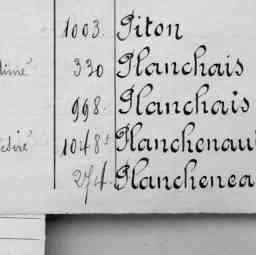 1003. Piton
330 Planchais
998. Planchais
1048 Planchenau
274. Planchenea